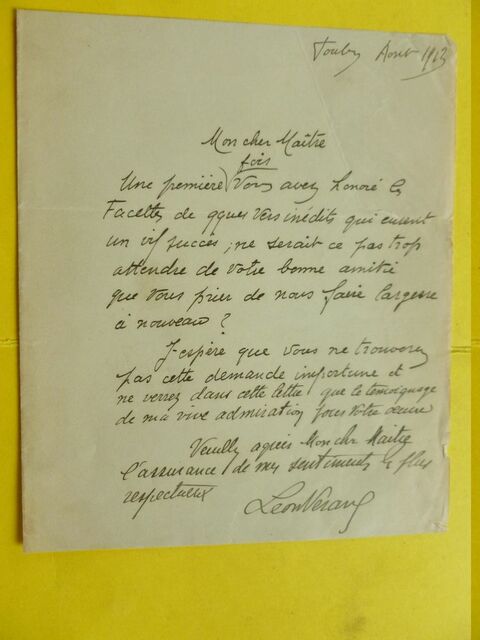 Toulon Aout 1913
Mon cher Maître
fois
Une première Vous avez honoré les
Facettes de qques vers inédits qui eurent
un vif succès ; ne serait ce pas trop
attendre de votre bonne amitié
que vous prier de nous faire largesse
à nouveau ?
J'espère que vous ne trouverez
pas cette demande importune et
ne verrez dans cette lettre que le témoignage
de ma vive admiration pour votre œuvre
Veuillez agréer Mon cher Maître
l'assurance de mes sentiments les plus
respectueux
Léon Vérane